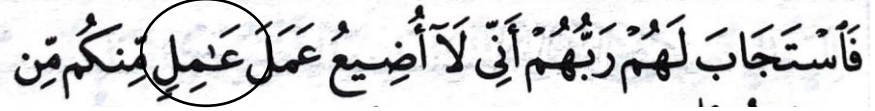 فَٱسْتَجَابَ لَهُمْ رَبُّهُمْ أَنِّى لَآ أُضِيعُ عَمَلَ عَـٰمِلٍ مِّنكُم مِّن